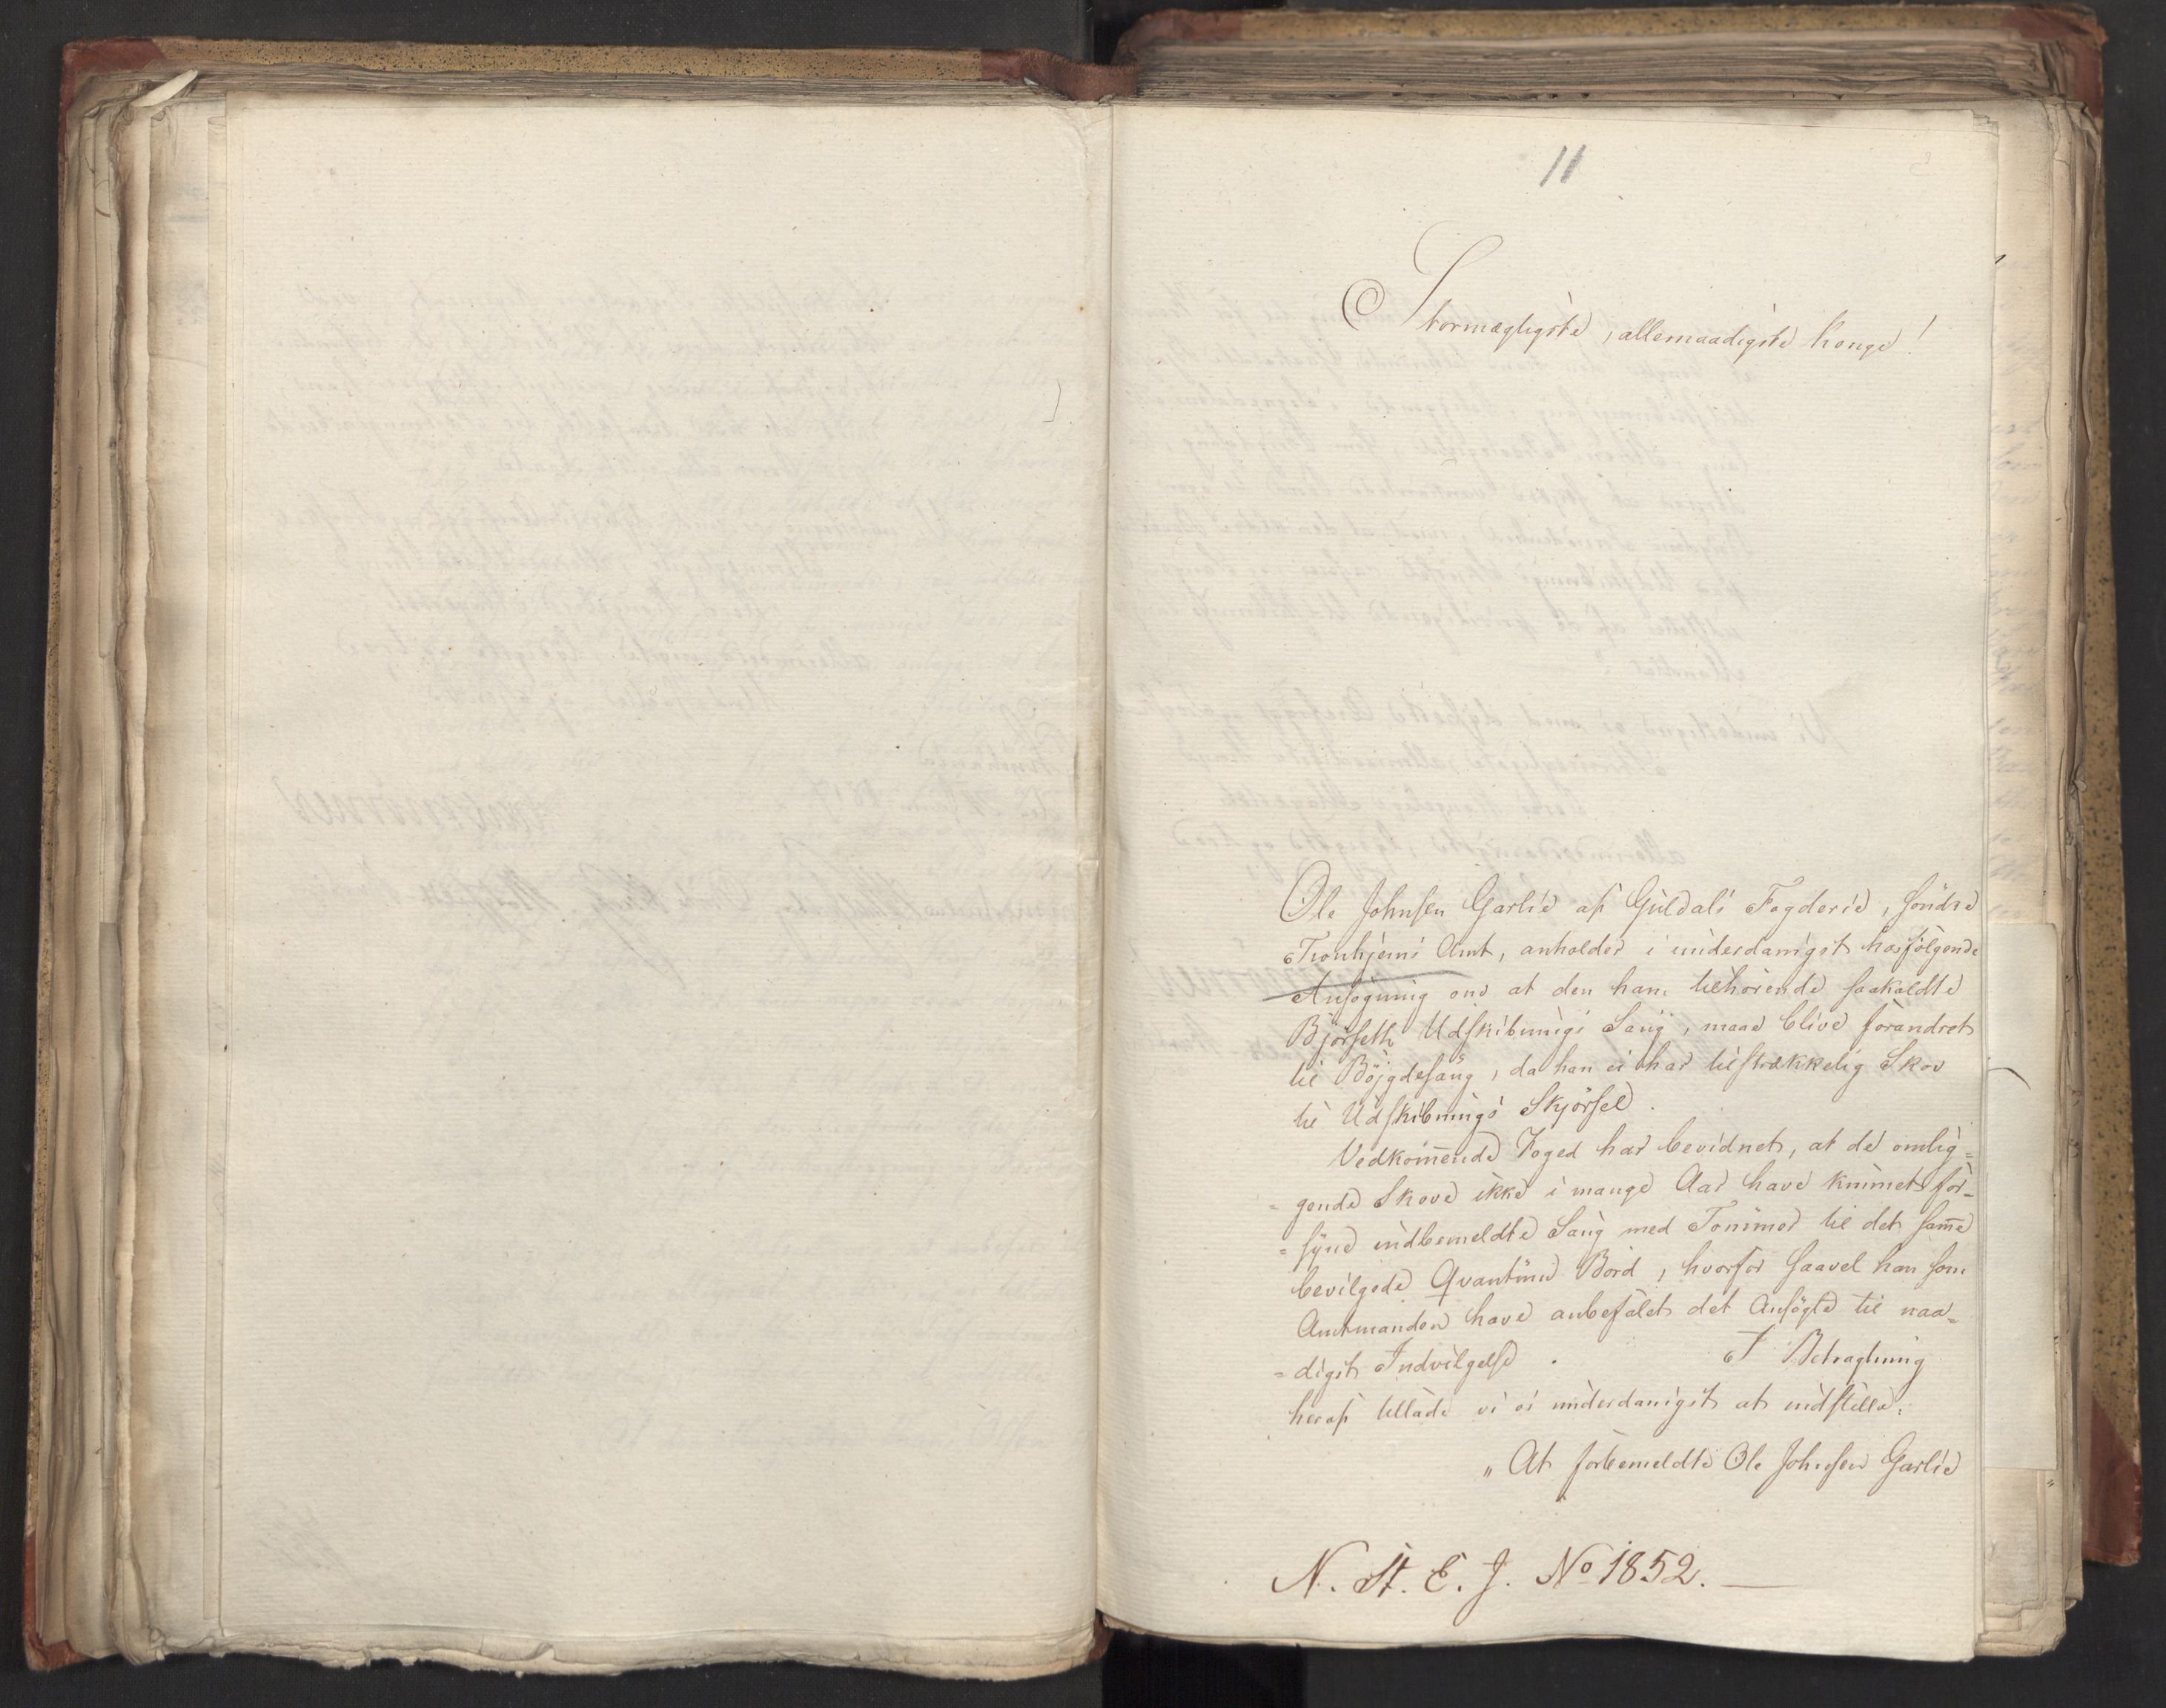 11
Stormægtigste, allernaadigste Konge!
Ole Johnsen Garlie af Guldals Fogderie, søndre
Tronhjems Amt, anholder i underdanigst hosfølgende
Ansøgning om at den ham tilhørende saakaldte
Bjørseth Udskibnings Saug, maae blive forandret
til Bøjgdesaug, da han ei har tilstrækkelig Skov
til Udskibnings Skjørsel.
Vedkom̅ende Foged har bevidnet, at de omlig=
=gende Skove ikke i mange Aar have kunnet for=
=syne indbemeldte Saug med Tømmer til det sam̅e
bevilgede Qvantum Bord, hvorfor saavel han som
Amtmanden have anbefalet det Ansøgte til naa=
=digst Indvilgelse. I Betragtning
heraf tillade vi os underdanigst at indstille:
„At forbemeldte Ole Johnsen Garlie
N. St. E. J. No 1852.